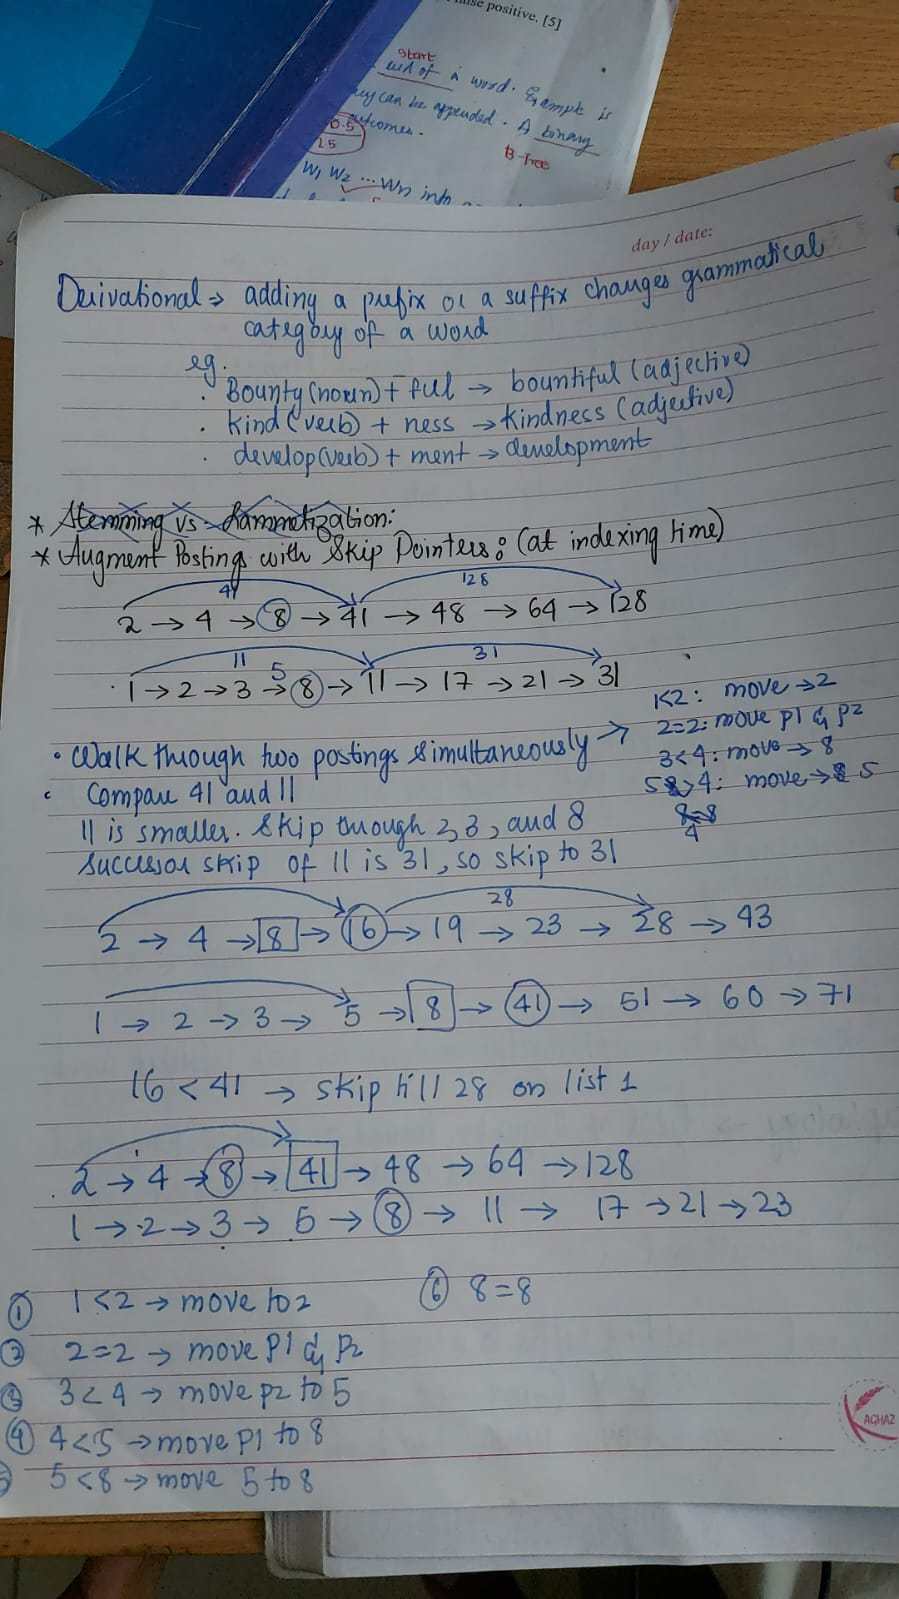 positive. [5]
Start
end of a word. Example is
can be appended. A binary
outcomes.
B-Tree
0.5
W1 W2 ... Wn into
day / date:
Derivational → adding a prefix or a suffix changes grammatical
category of a word
eg.
. Bounty (noun) + ful → bountiful (adjective)
. kind (verb) + ness → kindness (adjective)
. develop (verb) + ment → development
* Stemming vs Lammetization:
* Augment Posting with Skip Pointers: (at indexing time)
41 128
2 → 4 → 8 → 41 → 48 → 64 → 128
11 31
5
1 → 2 → 3 → 8 → 11 → 17 → 21 → 31
1<2: move → 2
• Walk through two postings simultaneously → 2=2: move p1 & p2
3<4: move → 8
• Compare 41 and 11
5 > 4: move → 5
11 is smaller. Skip through 2, 3, and 8
8=8
4
Successor skip of 11 is 31, so skip to 31
28
2 → 4 → 8 → 16 → 19 → 23 → 28 → 43
1 → 2 → 3 → 5 → 8 → 41 → 51 → 60 → 71
16 < 41 → skip till 28 on list 1
2 → 4 → 8 → 41 → 48 → 64 → 128
1 → 2 → 3 → 5 → 8 → 11 → 17 → 21 → 23
① 1<2 → move to 2 ⑥ 8=8
② 2=2 → move P1 & P2
③ 3<4 → move p2 to 5
④ 4<5 → move P1 to 8
5<8 → move 5 to 8
KAGHAZ